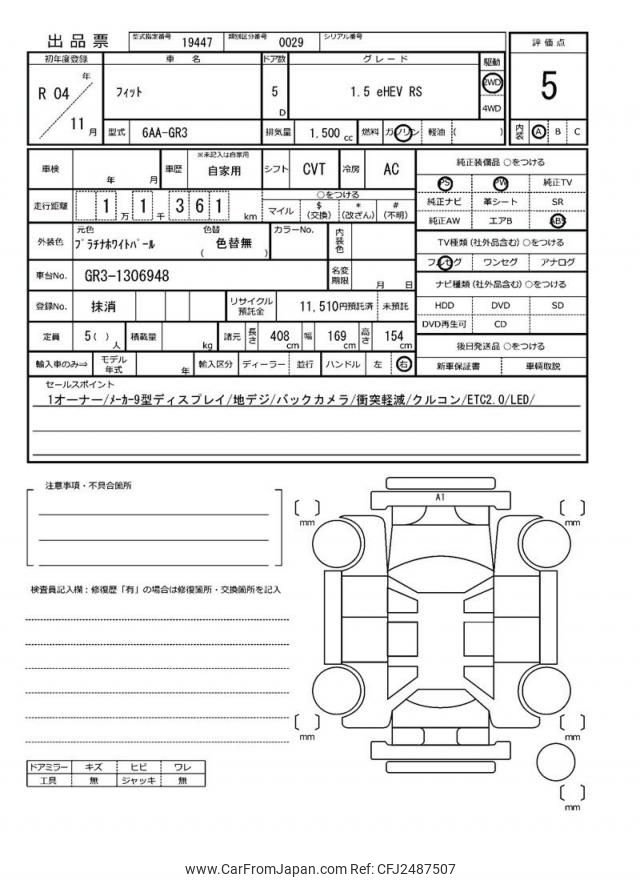 出品票 型式指定番号 19447 類別区分番号 0029 シリアル番号
評価点
5
内装 A B C
初年度登録 車名 ドア数 グレード 駆動
R 04 年 11 月 フィット 5 D 1.5 eHEV RS 2WD 4WD
型式 6AA-GR3 排気量 1.500 cc 燃料 ガソリン 軽油 ( )
車検 年 月 車歴 ※未記入は自家用 自家用 シフト CVT 冷房 AC
走行距離 1 万 1 千 3 6 1 km ○をつける
マイル $ (交換) * (改ざん) # (不明)
外装色 元色 プラチナホワイトパール 色替 ( 色替無 ) カラーNo. 内装色
車台No. GR3-1306948 名変期限 月 日
登録No. 抹消 リサイクル預託金 11,510円預託済 未預託
定員 5( ) 人 積載量 kg 諸元 長さ 408 cm 幅 169 cm 高さ 154 cm
輸入車のみ⇒ モデル年式 年 輸入区分 ディーラー 並行 ハンドル 左 右
純正装備品 ○をつける
PS PW 純正TV
純正ナビ 革シート SR
純正AW エアB ABS
TV種類(社外品含む)○をつける
フルセグ ワンセグ アナログ
ナビ種類(社外品含む)○をつける
HDD DVD SD
DVD再生可 CD
後日発送品 ○をつける
新車保証書 車輌取説
セールスポイント
1オーナー/メーカー9型ディスプレイ/地デジ/バックカメラ/衝突軽減/クルコン/ETC2.0/LED/
注意事項・不具合箇所
検査員記入欄:修復歴「有」の場合は修復箇所・交換箇所を記入
ドアミラー キズ ヒビ ワレ
工具 無 ジャッキ 無
A1
mm
mm
mm
mm
mm
www.CarFromJapan.com Ref: CFJ2487507